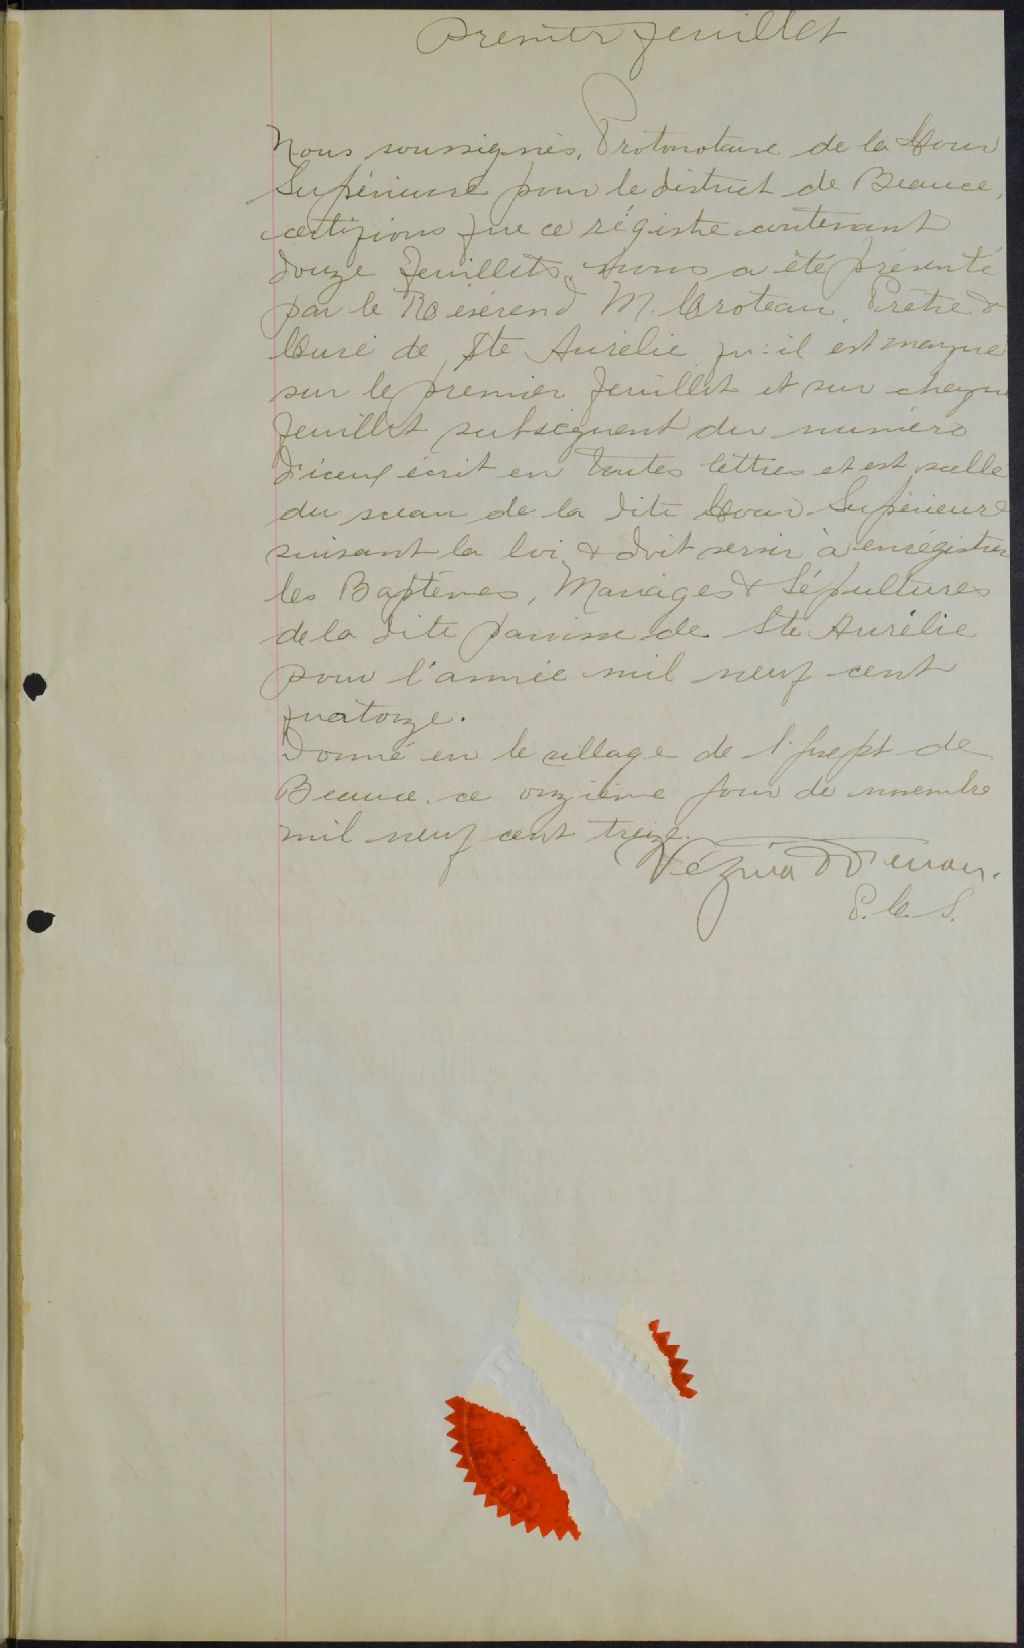 Premier feuillet
Nous soussignés, Protonotaire de la Cour
Supérieure pour le district de Beauce,
certifions que ce régistre contenant
douze feuillets, nous a été présenté
par le Révérend M. Croteau, Prêtre &
Curé de Ste Aurélie qu'il est marqué
sur le premier feuillet et sur chaque
feuillet subséquent du numéro
d'iceux écrit en toutes lettres et est scellé
du sceau de la dite Cour Supérieure
suivant la loi & doit servir à enrégistrer
les Baptêmes, Mariages & Sépultures
de la dite paroisse de Ste Aurélie
pour l'année mil neuf cent
quatorze.
Donné en le village de St Joseph de
Beauce, ce onzième jour de novembre
mil neuf cent treize.
Vézina &
P. C. S.